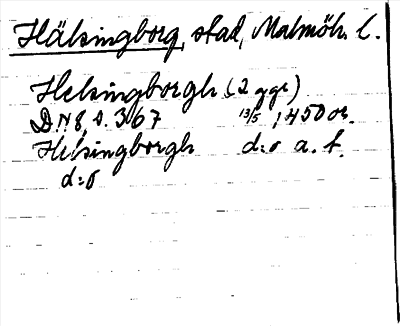 Hälsingborg, stad, Malmöh. l.
Helsingborgh (2 ggr)
D.N 8, s. 367 13/5 1450 or.
Helsingborgh d:o a. f.
d:o